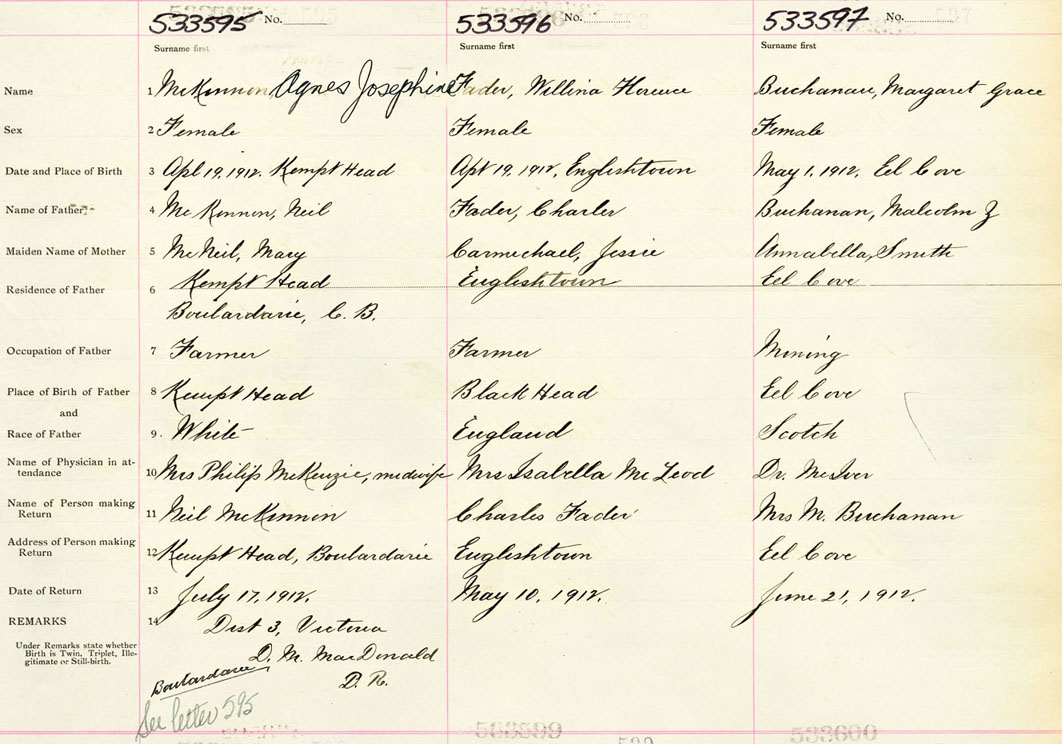 533595 No. 533596 No. 533597 No.
Surname first Surname first Surname first
Name 1 McKinnon Agnes Josephine Fader, Willina Florence Buchanan, Margaret Grace
Sex 2 Female Female Female
Date and Place of Birth 3 Apl 19, 1912. Kempt Head Apl 19, 1912, Englishtown May 1, 1912, Eel Cove
Name of Father 4 McKinnon, Neil Fader, Charles Buchanan, Malcolm
Maiden Name of Mother 5 McNeil, Mary Carmichael, Jessie Annabella, Smith
Residence of Father 6 Kempt Head Englishtown Eel Cove
Boulardarie, C. B.
Occupation of Father 7 Farmer Farmer Mining
Place of Birth of Father 8 Kempt Head Black Head Eel Cove
and
Race of Father 9. White England Scotch
Name of Physician in at-
tendance 10 Mrs Philip McKenzie, midwife Mrs Isabella McLeod Dr. McIver
Name of Person making
Return 11 Neil McKinnon Charles Fader Mrs M. Buchanan
Address of Person making
Return 12 Kempt Head, Boulardarie Englishtown Eel Cove
Date of Return 13 July 17, 1912. May 10, 1912. June 21, 1912.
REMARKS 14 Dist 3, Victoria
Under Remarks state whether
Birth is Twin, Triplet, Ille-
gitimate or Still-birth.
D. M. MacDonald
D. R.
Boulardarie
See letter 595
533599 533600